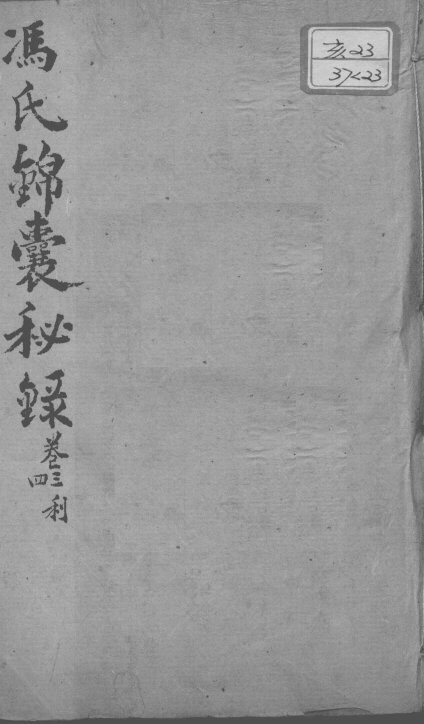 馮氏錦囊秘録
卷三四 利
亥23
37<23